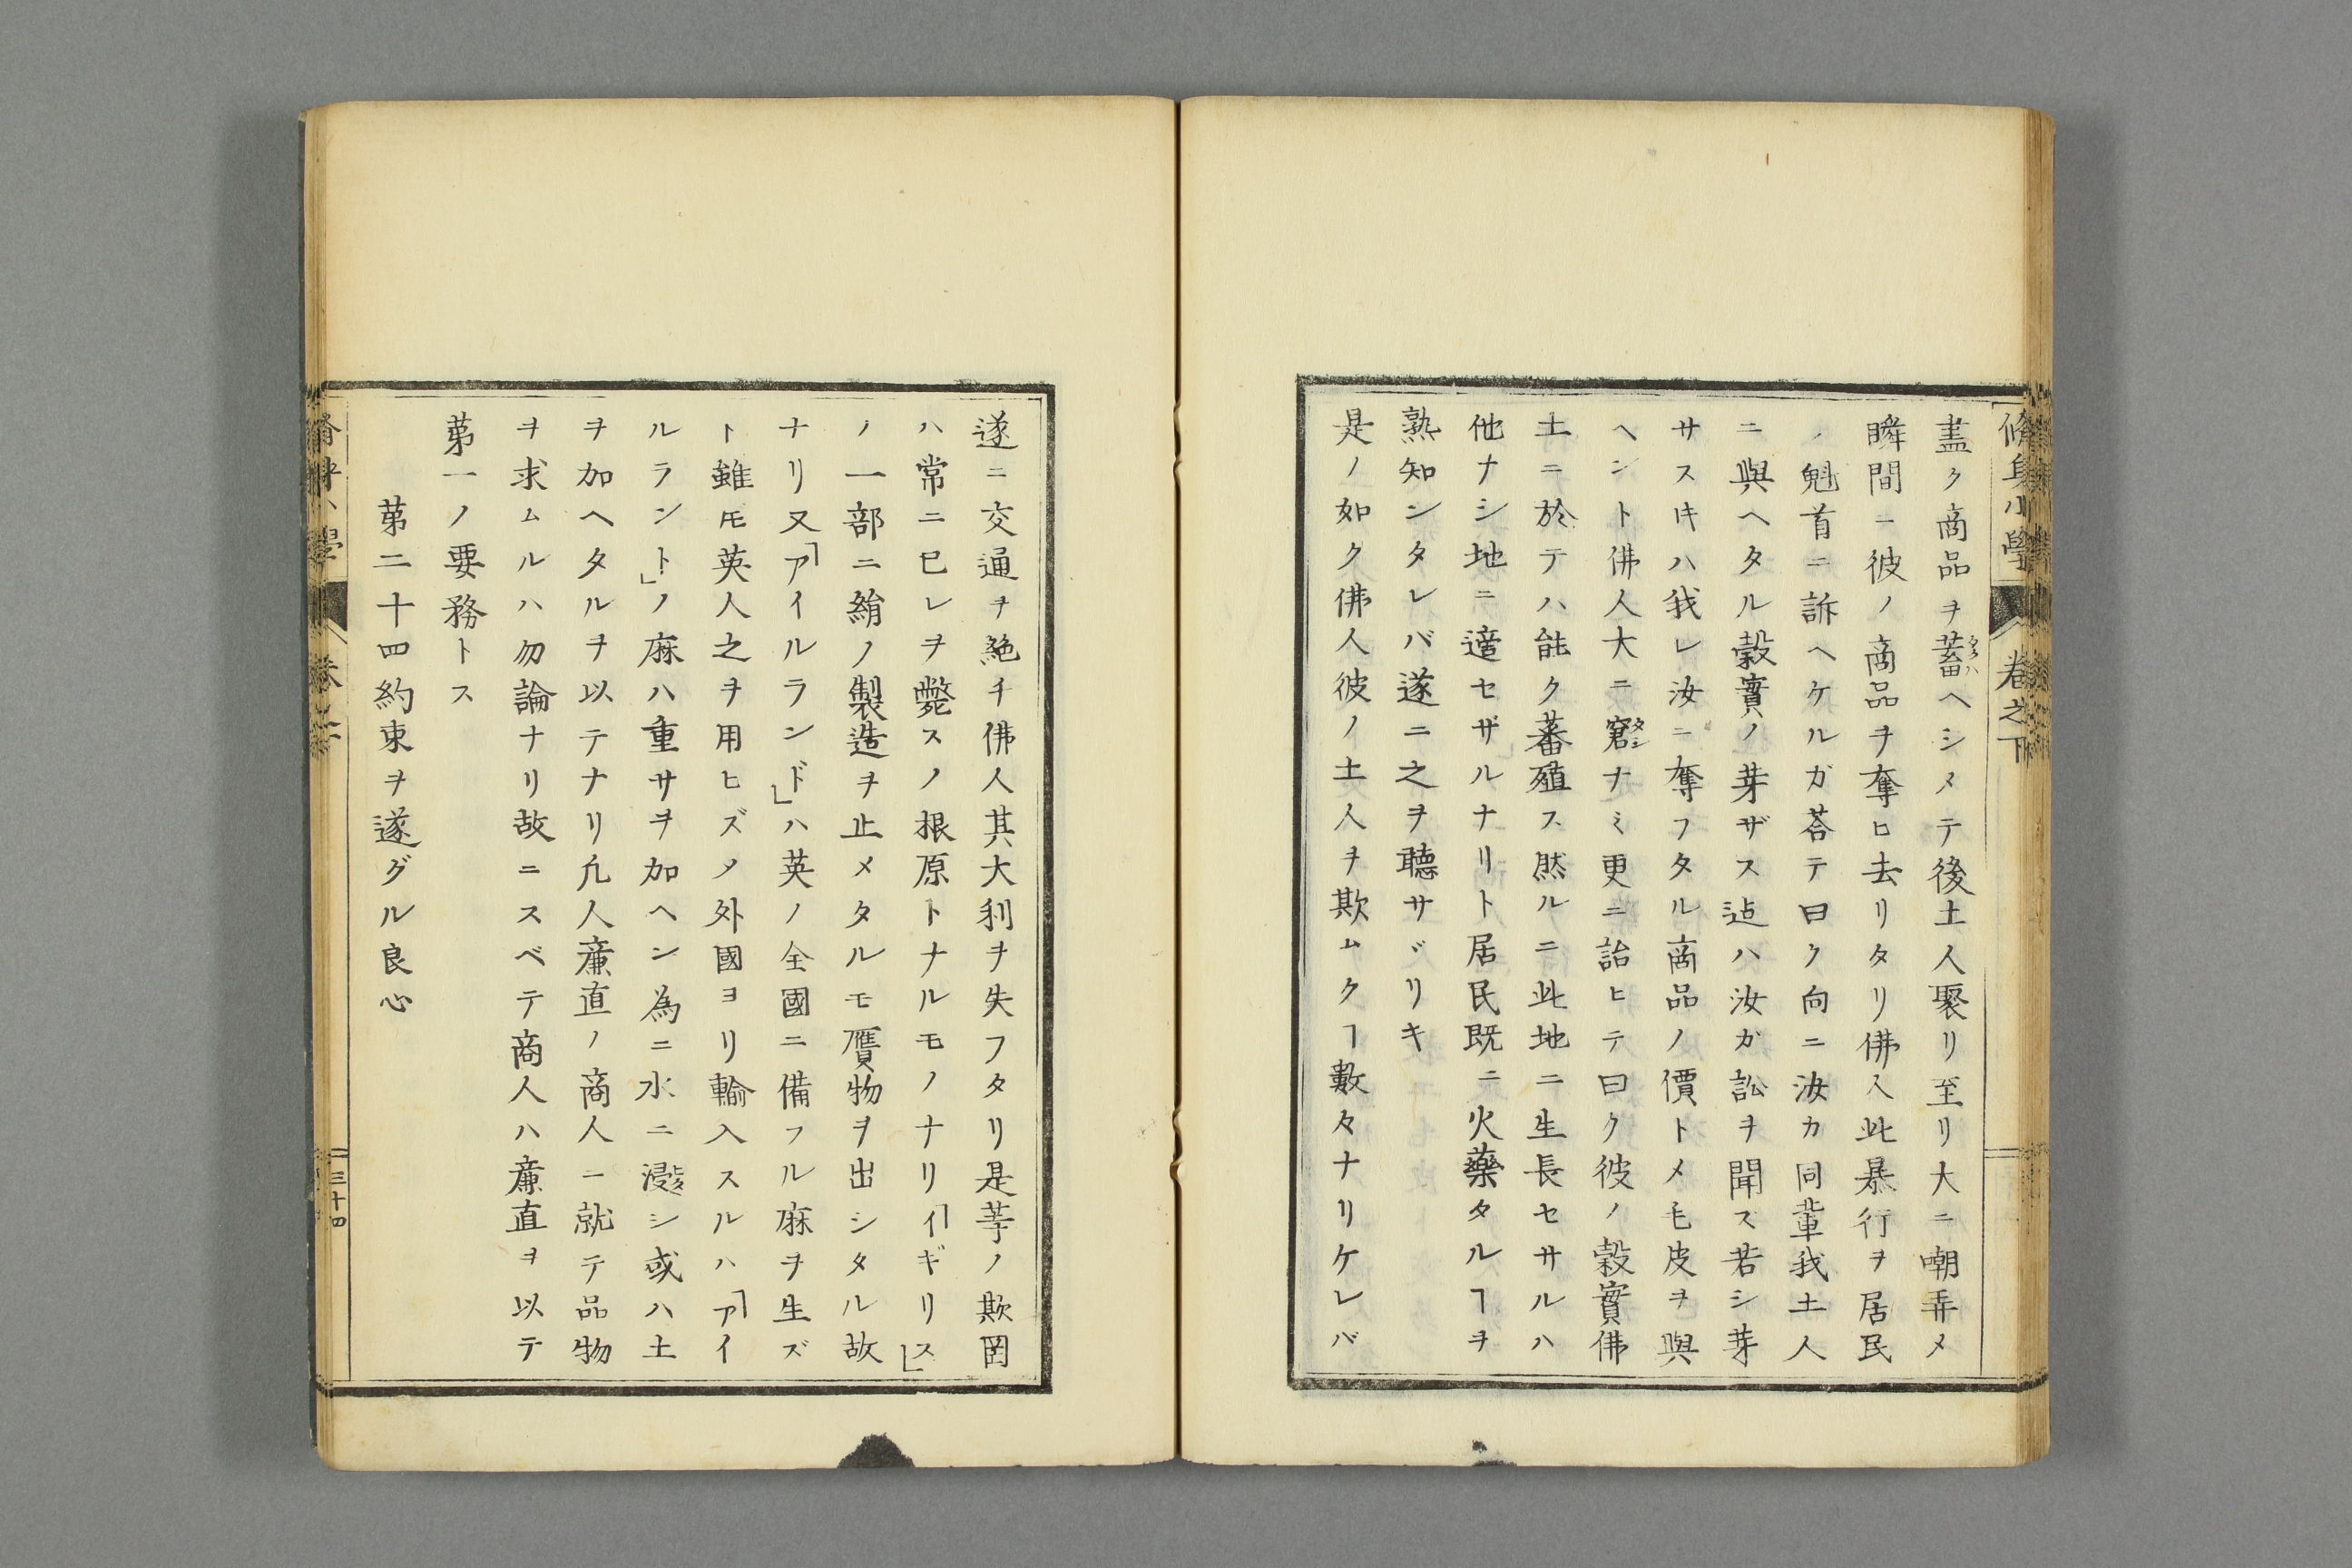 脩身小學 卷之下
盡ク商品ヲ蓄ヘシメテ後土人聚リ至リ大ニ嘲弄メ
瞬間ニ彼ノ商品ヲ奪ヒ去リタリ佛人此暴行ヲ居民
ノ魁首ニ訴ヘケルガ荅テ曰ク向ニ汝カ同輩我土人
ニ與ヘタル穀實ノ芽ザス迠ハ汝ガ訟ヲ聞ス若シ芽
サスキハ我レ汝ニ奪フタル商品ノ價トメ毛皮ヲ與
ヘントト佛人大ニ窘ナミ更ニ詰ヒテ曰ク彼ノ穀實佛
土ニ於テハ能ク蕃殖ス然ルニ此地ニ生長セサルハ
他ナシ地ニ適セザルナリト居民既ニ火藥タルヿヲ
熟知シタレバ遂ニ之ヲ聽サヾリキ
是ノ如ク佛人彼ノ土人ヲ欺ムクヿ數々ナリケレバ
遂ニ交通ヲ絶チ佛人其大利ヲ失フタリ是等ノ欺罔
ハ常ニ已レヲ斃スノ根原トナルモノナリ「イギリス」
ノ一部ニ絹ノ製造ヲ止メタルモ贋物ヲ出シタル故
ナリ又「アイルランド」ハ英ノ全國ニ備フル麻ヲ生ズ
ト雖𪜈英人之ヲ用ヒズメ外國ヨリ輸入スルハ「アイ
ルラント」ノ麻ハ重サヲ加ヘン為ニ水ニ漫シ或ハ土
ヲ加ヘタルヲ以テナリ凢人亷直ノ商人ニ就テ品物
ヲ求ムルハ勿論ナリ故ニスベテ商人ハ亷直ヲ以テ
第一ノ要務トス
第二十四約束ヲ遂グル良心
三十四